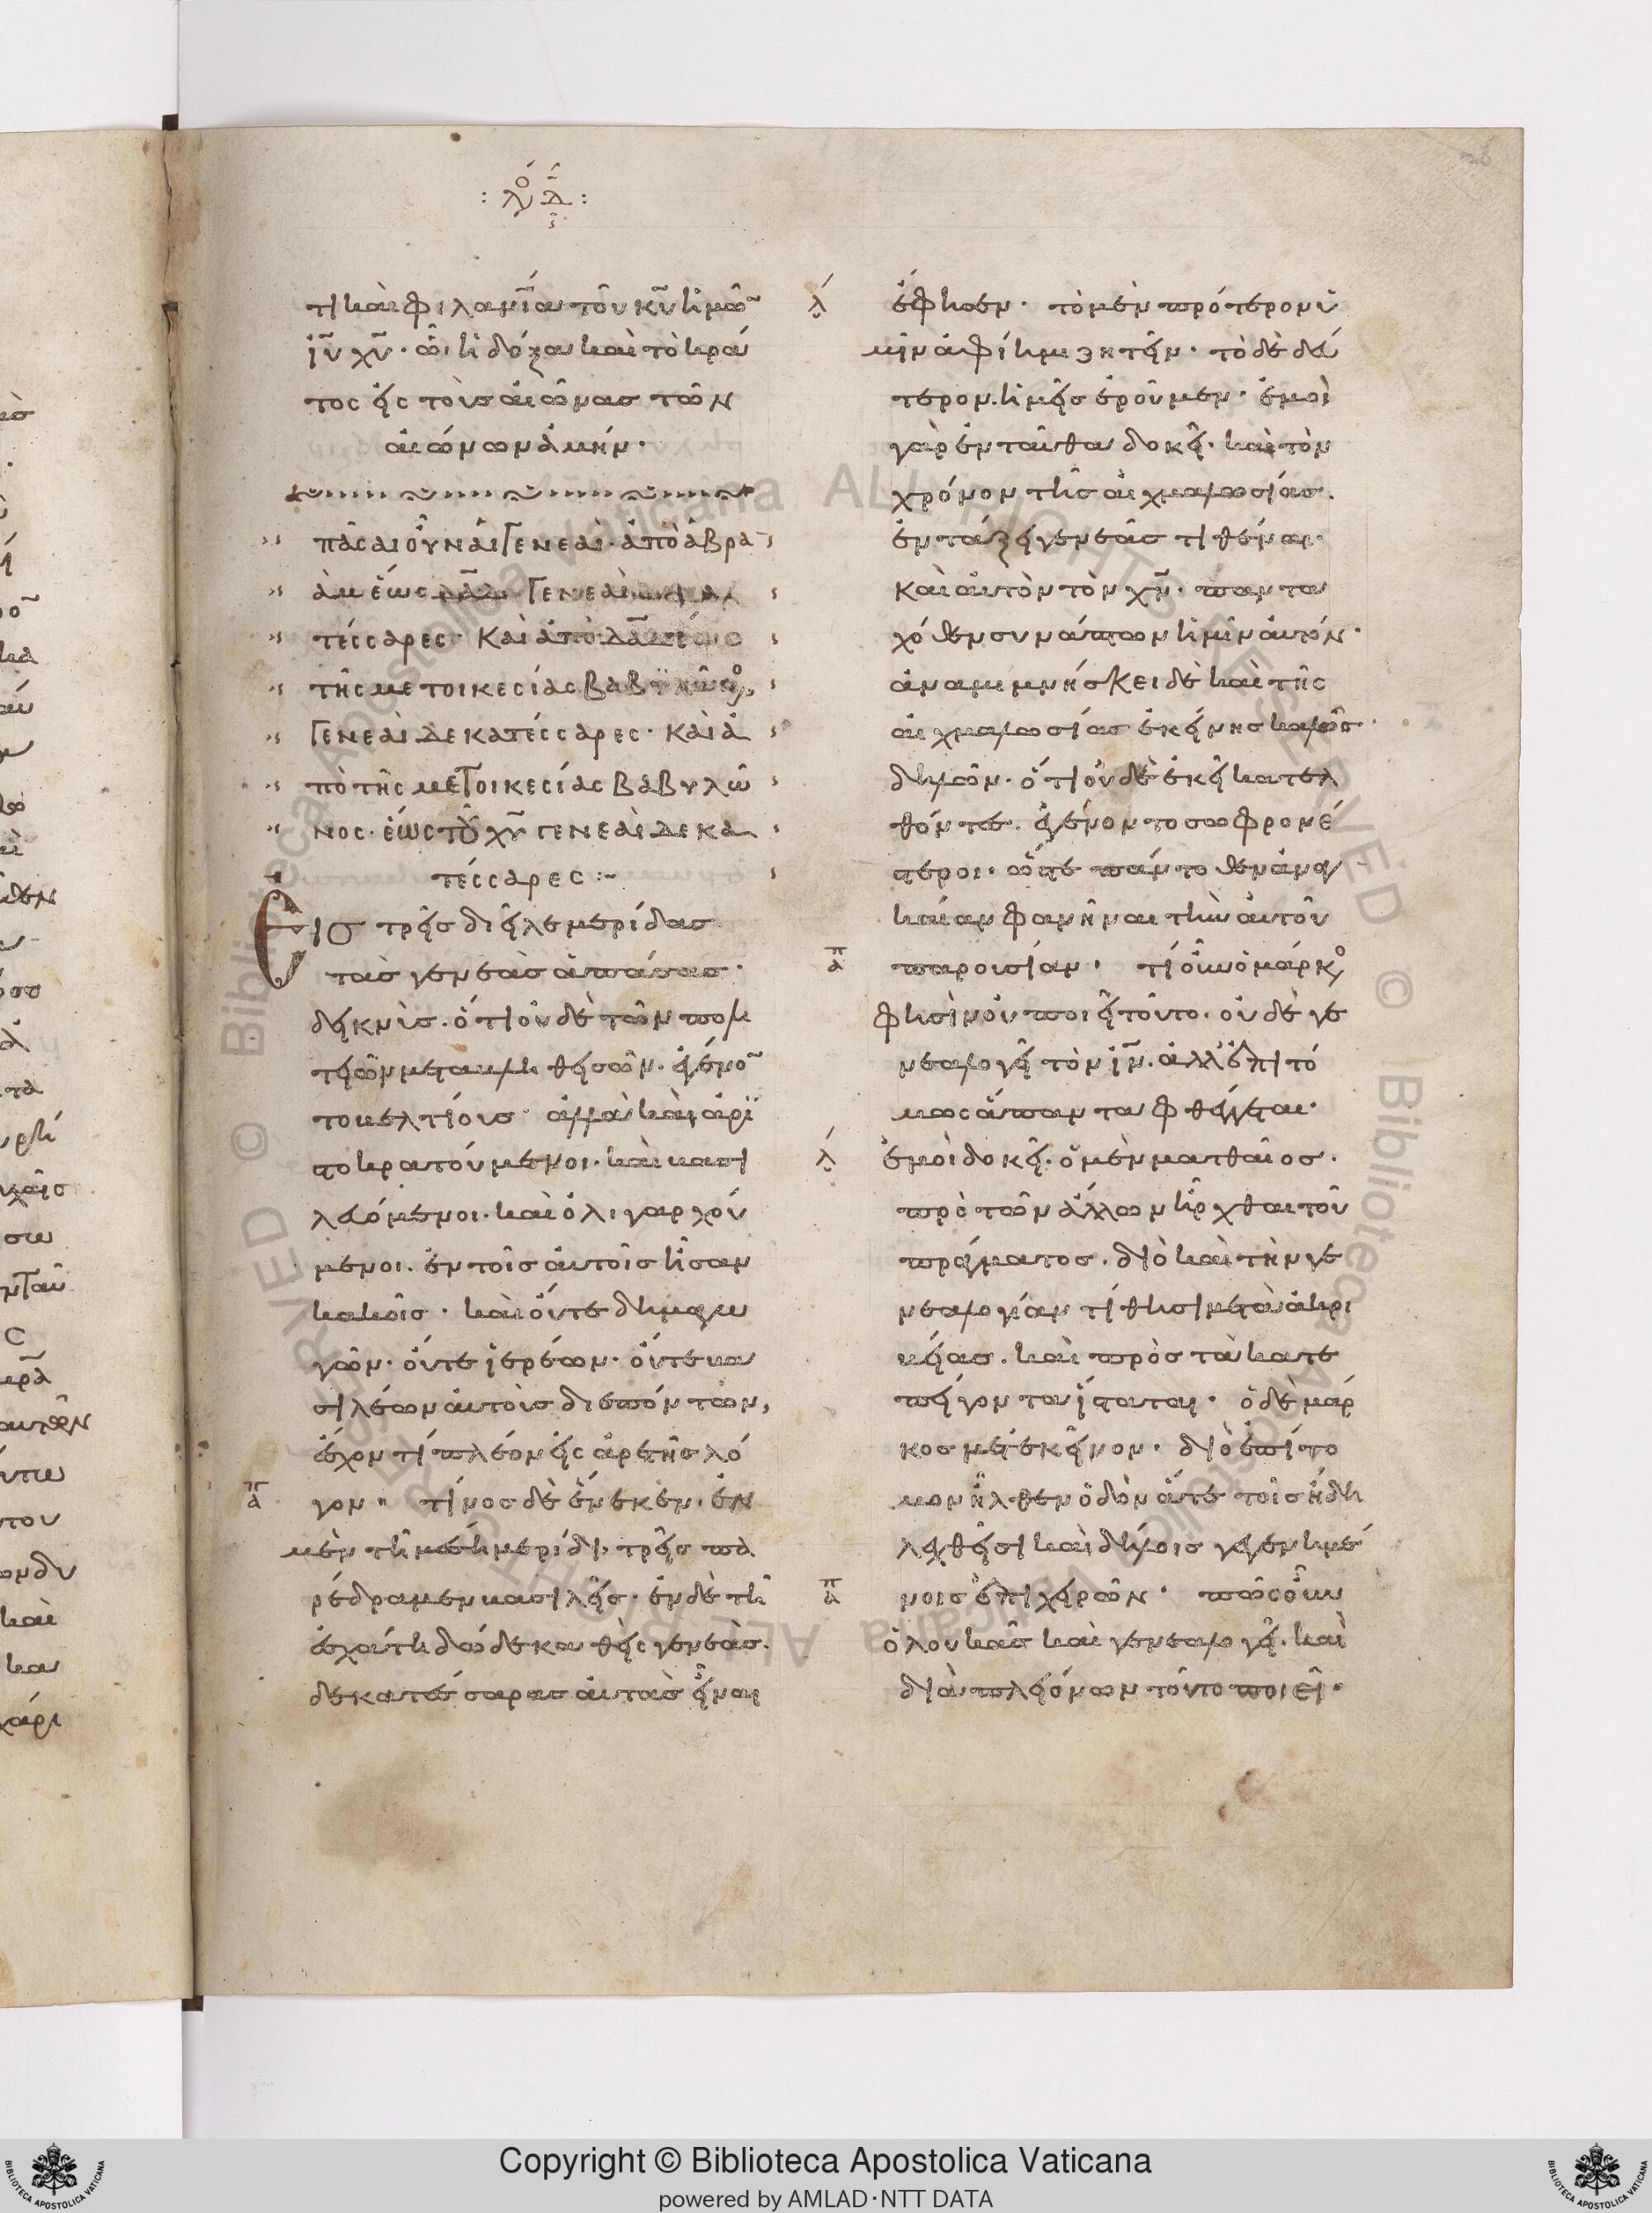 : λό δ :
τι καὶ φιλανίαν τοῦ κυ ἡμῶ
ιυ χυ· ὧι ἡ δόξα καὶ τὸ κρά
τος εἰς τοὺς αἰῶνας τῶν
αἰώνων ἀμήν·
πᾶσαι οὖν αἱ γενεαὶ· ἀπὸ ἀβρα
ὰμ ἕως δαδ γενεαὶ
τέσσαρες· Καὶ ἀπὸ δαδ ἕως
τῆς μετοικεσίας βαβυλῶνος,
γενεαὶ δεκατέσσαρες· καὶ ἀ
πὸ τῆς μετοικεσίας βαβυλῶ
νος· ἕως τοῦ χυ γενεαὶ δεκα
τέσσαρες :~
Εἰς τρεῖς διεῖλε μερίδας
τὰς γενεὰς ἁπάσας·
δεικνὺς· ὅτι οὐδὲ τῶν πολι
τειῶν μεταβληθεισῶν· ἐγένο
το βελτίους· ἀλλὰ καὶ ἀρι
στοκρατούμενοι· καὶ βασι
λευόμενοι· καὶ ὀλιγαρχού
μενοι· ἐν τοῖς αὐτοῖς ἦσαν
κακοῖς· καὶ οὔτε δημαγω
γῶν· οὔτε ἱερέων· οὔτε βα
σιλέων αὐτοὺς διεπόντων,
ἔσχον τί πλέον εἰς ἀρετῆς λό
πα γον " τίνος δὲ ἕνεκεν· ἐν
μὲν τῆ μέση μερίδι, τρεῖς πα
ρέδραμεν βασιλεῖς· ἐν δὲ τῆ
ἐσχάτη δώδεκα θεὶς γενεὰς·
δεκατέσσαρας αὐτὰς εἶναι
λ ἔφησεν· τὸ μὲν πρότερον ὑ
μῖν ἀφίημι ζητεῖν· τὸ δὲ δεύ
τερον· ἡμεῖς ἐροῦμεν· ἐμοὶ
γὰρ ἐνταῦθα δοκεῖ· καὶ τὸν
χρόνον τῆς αἰχμαλωσίας·
ἐν τάξει γενεᾶς τιθέναι·
Καὶ αὐτὸν τὸν χν· παντα
χόθεν συνάπτων ἡμῖν αὐτόν·
ἀναμιμνήσκει δὲ καὶ τῆς
αἰχμαλωσίας ἐκείνης καλῶς·
δηλῶν· ὅτι οὐδὲ ἐκεῖ κατελ
θόντες· ἐγένοντο σωφρονέ
στεροι· ὥστε πάντοθεν ἀναγ
καίαν φανῆναι τὴν αὐτοῦ
πα παρουσίαν· τί οὖν ὁ μάρκος
φησὶν οὐ ποιεῖ τοῦτο· οὐδὲ γε
νεαλογεῖ τὸν ιν· ἀλλ' ἐπιτό
μως ἅπαντα φθέγγεται·
λ ἐμοὶ δοκεῖ· ὁ μὲν ματθαῖος·
πρὸ τῶν ἄλλων ἦρχθαι τοῦ
πράγματος· διὸ καὶ τὴν γε
νεαλογίαν τίθησι μετὰ ἀκρι
βείας· καὶ πρὸς τὰ κατε
πείγοντα ἵσταται· ὁ δὲ μάρ
κος μετ' ἐκεῖνον· διὸ ἐπὶ το
μον ἦλθεν ὁδὸν ἅτε τοῖς ἤδη
λεχθεῖσι καὶ δήλοις γεγενημέ
πα νοις ἐπιχειρῶν· πῶς οὖν
ὁ λουκᾶς καὶ γενεαλογεῖ· καὶ
διὰ πλειόνων τοῦτο ποιεῖ·
Copyright © Biblioteca Apostolica Vaticana
powered by AMLAD·NTT DATA